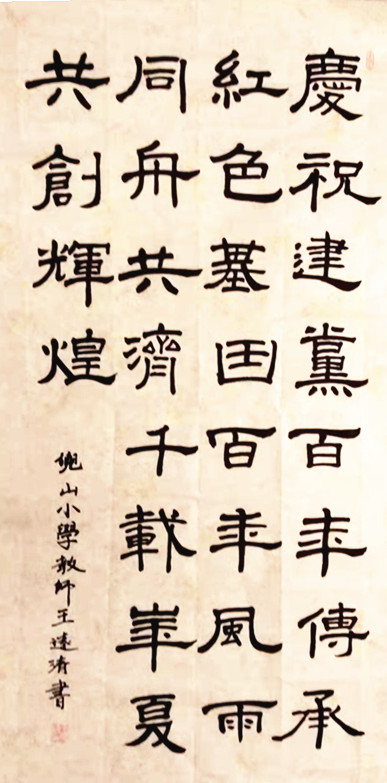 慶祝建黨百年傳承
紅色基因百年風雨
同舟共濟千載華夏
共創輝煌
山小學教師王遠清書